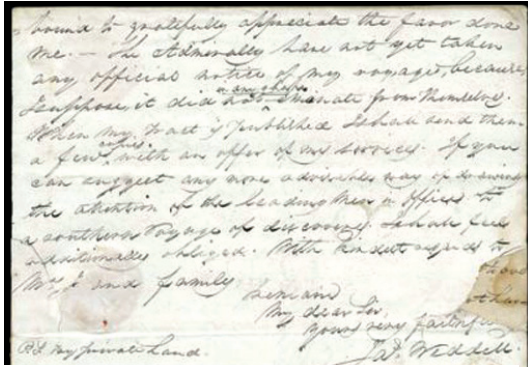 bound to gratefully appreciate the favor done
me. – The Admiralty have not yet taken
any official notice of my voyage, because
I suppose, it did not emanate from themselves.
When my tract is published I shall send them
a few copies with an offer of my services. If you
can suggest any more advisable way of drawing
the attention of the leading Men in Office to
a southern voyage of discovery I shall feel
additionally obliged. With kindest regards to
Mrs and family
I remain
My dear Sir,
Yours very faithfully
Jas. Weddell.
P.S. my private hand.